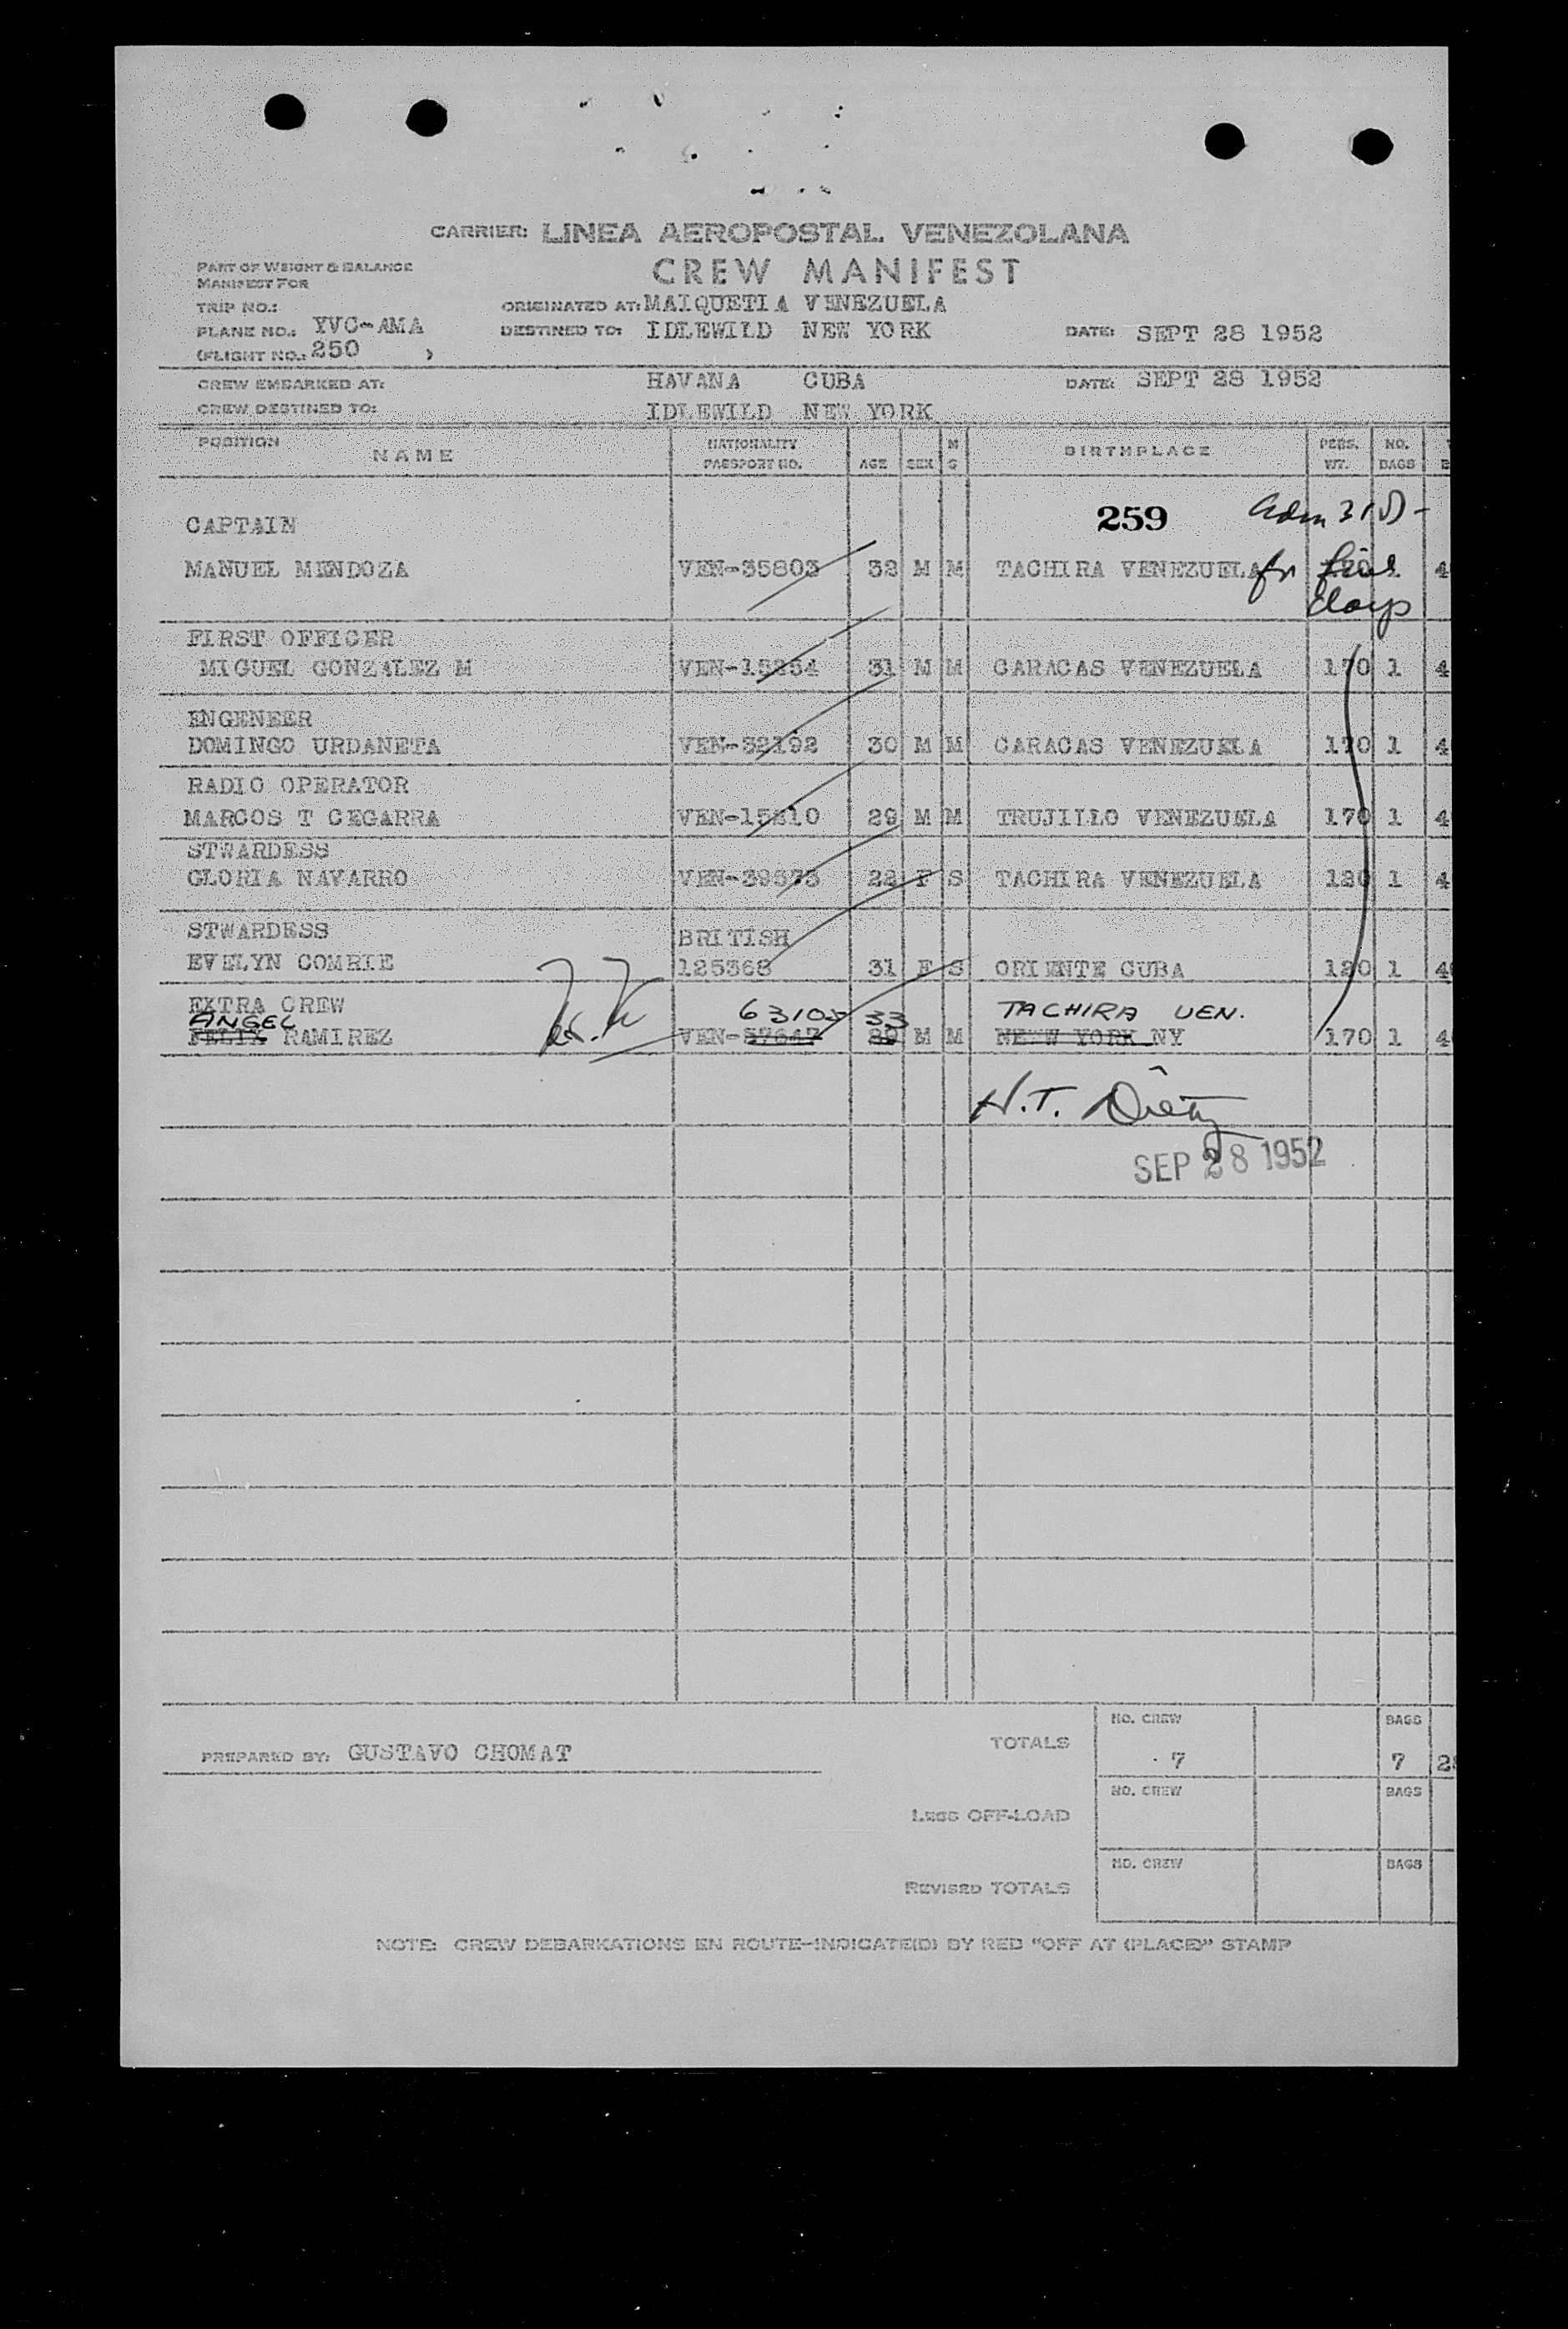 CARRIER: LINEA AEROPOSTAL VENEZOLANA
PART OF WEIGHT & BALANCE
MANIFEST FOR
CREW MANIFEST
TRIP NO.:
ORIGINATED AT: MAIQUETIA VENEZUELA
PLANE NO.: YVC-AMA
DESTINED TO: IDLEWILD NEW YORK
DATE: SEPT 28 1952
(FLIGHT NO.: 250 )
CREW EMBARKED AT: HAVANA CUBA
DATE: SEPT 28 1952
CREW DESTINED TO: IDLEWILD NEW YORK
POSITION NAME NATIONALITY PASSPORT NO. AGE SEX M S BIRTHPLACE PERS. WT. NO. BAGS
CAPTAIN 259 Adm 3(5)-
MANUEL MENDOZA VEN-35803 32 M M TACHIRA VENEZUELA for five 1 4
days
FIRST OFFICER
MIGUEL GONZALEZ M VEN-15254 31 M M CARACAS VENEZUELA 170 1 4
ENGENEER
DOMINGO URDANETA VEN-32192 30 M M CARACAS VENEZUELA 170 1 4
RADIO OPERATOR
MARCOS T CEGARRA VEN-15810 29 M M TRUJILLO VENEZUELA 170 1 4
STWARDESS
GLORIA NAVARRO VEN-39373 22 F S TACHIRA VENEZUELA 120 1 4
STWARDESS BRITISH
EVELYN COMRIE 125368 31 F S ORIENTE CUBA 120 1 4
EXTRA CREW
ANGEL 63105 33 TACHIRA VEN.
FELIX RAMIREZ VEN-57647 29 M M NEW YORK NY 170 1 4
H.T. Dietz
SEP 28 1952
PREPARED BY: GUSTAVO CHOMAT
TOTALS NO. CREW 7 BAGS 7 2
LESS OFF-LOAD NO. CREW BAGS
REVISED TOTALS NO. CREW BAGS
NOTE: CREW DEBARKATIONS EN ROUTE-INDICATE(D) BY RED "OFF AT (PLACE)" STAMP